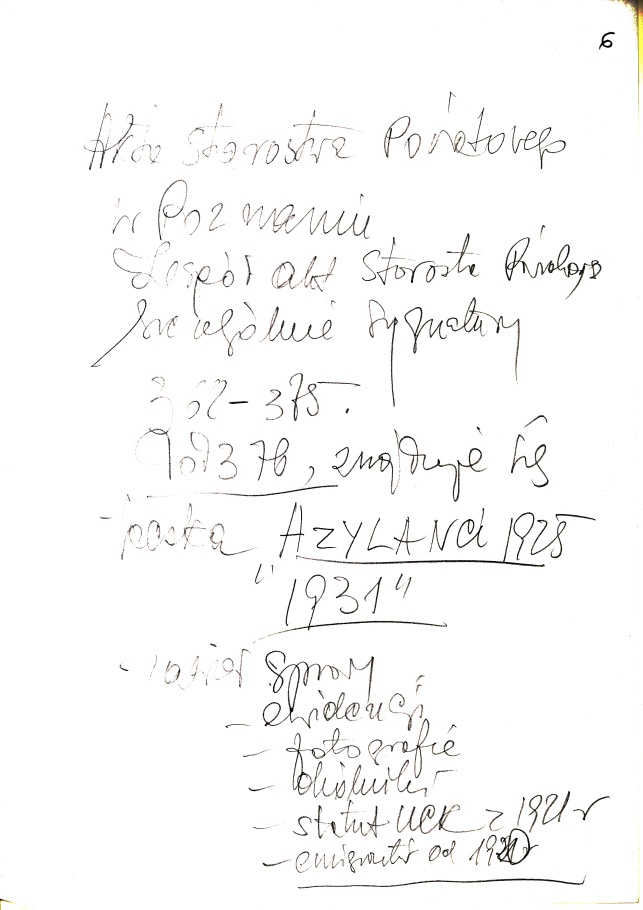 6
Akta Starostwa Powiatowego
w Poznaniu
Zespół akt Starosta
szczególnie sygnatury
362–375.
Pod 376, znajduje się
- teczka AZYLANCI 1925
" 1931"
- sprawy
- ewidencji
- fotografie
- okólniki
- statut UCK z 1921 r
- emigranci od 1920 r